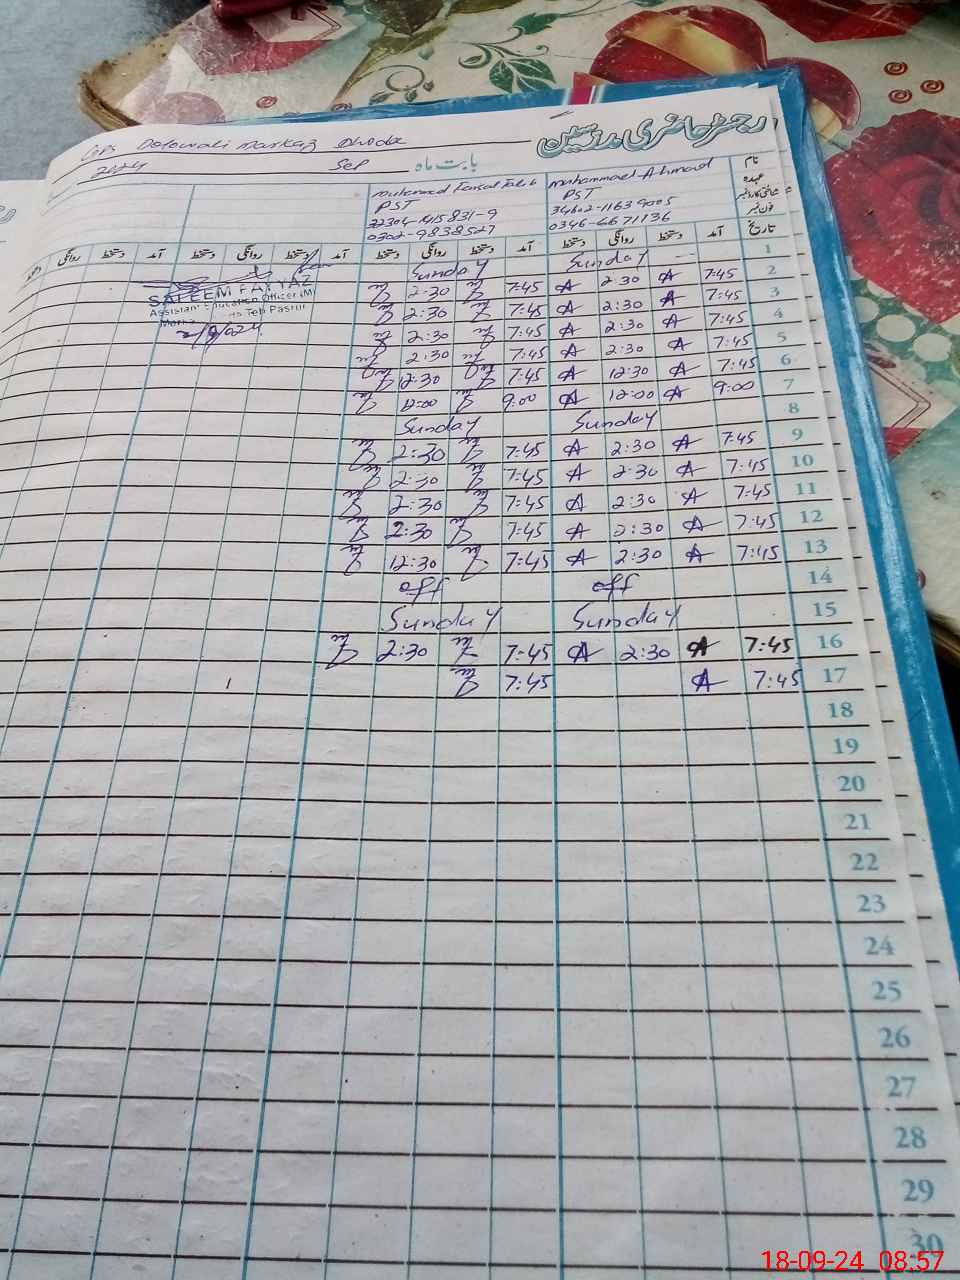 رجسٹر حاضری مدرسین
GPS Dolowali Markaz Dhoda
2024 Sep بابت ماہ
Muhammad Faisal Talib Muhammad Ahmad نام
PST PST عہدہ
34602-11639005
0302-9838527 0346-6671136 فون نمبر
دستخط روانگی دستخط آمد دستخط روانگی دستخط آمد دستخط روانگی دستخط آمد دستخط روانگی دستخط آمد تاریخ
Sunday Sunday 1
2:30 7:45 2:30 7:45 2
2:30 7:45 2:30 7:45 3
2:30 7:45 2:30 7:45 4
2:30 7:45 2:30 7:45 5
12:30 7:45 12:30 7:45 6
12:00 9:00 12:00 9:00 7
Sunday Sunday 8
2:30 7:45 2:30 7:45 9
2:30 7:45 2:30 7:45 10
2:30 7:45 2:30 7:45 11
2:30 7:45 2:30 7:45 12
12:30 7:45 2:30 7:45 13
off off 14
Sunday Sunday 15
2:30 7:45 2:30 7:45 16
7:45 7:45 17
18
19
20
21
22
23
24
25
26
27
28
29
30
SALEEM FAYYAZ
Assistant Education Officer (M)
Teh Pasrur
18-09-24 08:57